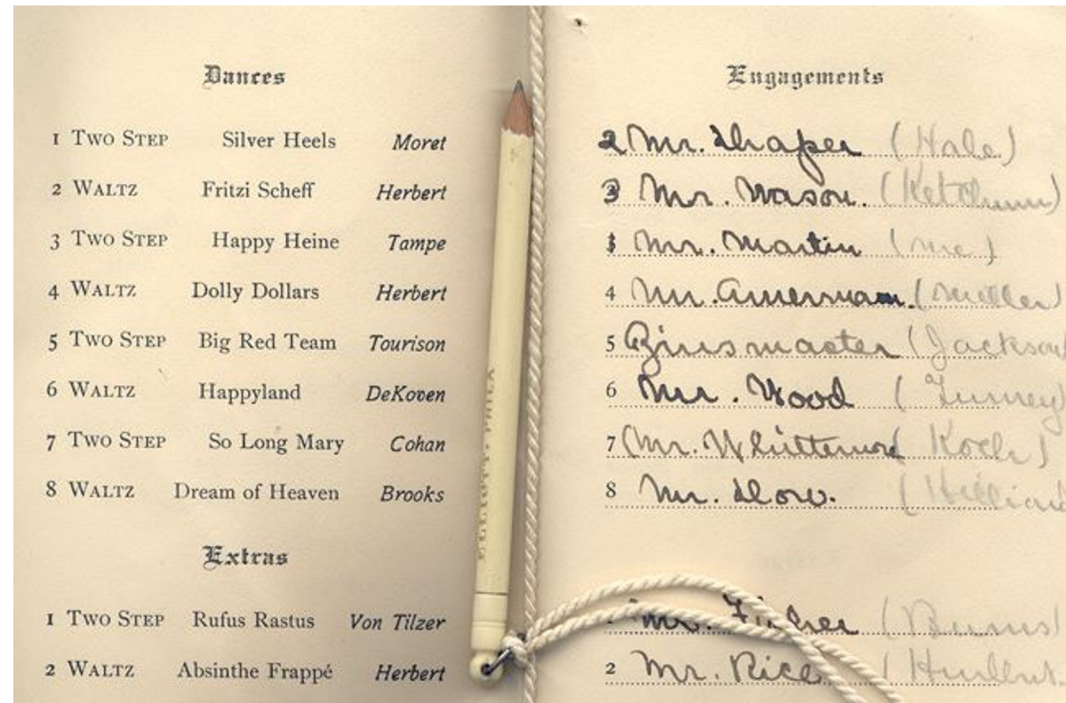 Dances
1 Two Step Silver Heels Moret
2 Waltz Fritzi Scheff Herbert
3 Two Step Happy Heine Tampe
4 Waltz Dolly Dollars Herbert
5 Two Step Big Red Team Tourison
6 Waltz Happyland DeKoven
7 Two Step So Long Mary Cohan
8 Waltz Dream of Heaven Brooks
Extras
1 Two Step Rufus Rastus Von Tilzer
2 Waltz Absinthe Frappé Herbert
ELLIOTT PHILA
Engagements
2 Mr. (Hale)
3 Mr. Wason. (Ketchum)
1 Mr. Martin (me)
4 Mr. Amerman. (Miller)
5 (Jackson)
6 Mr. Wood
7 Mr. Whittemore (Koch)
8 Mr. Dow.
Mr. Fisher (Burns)
2 Mr. Rice (Hurlbut